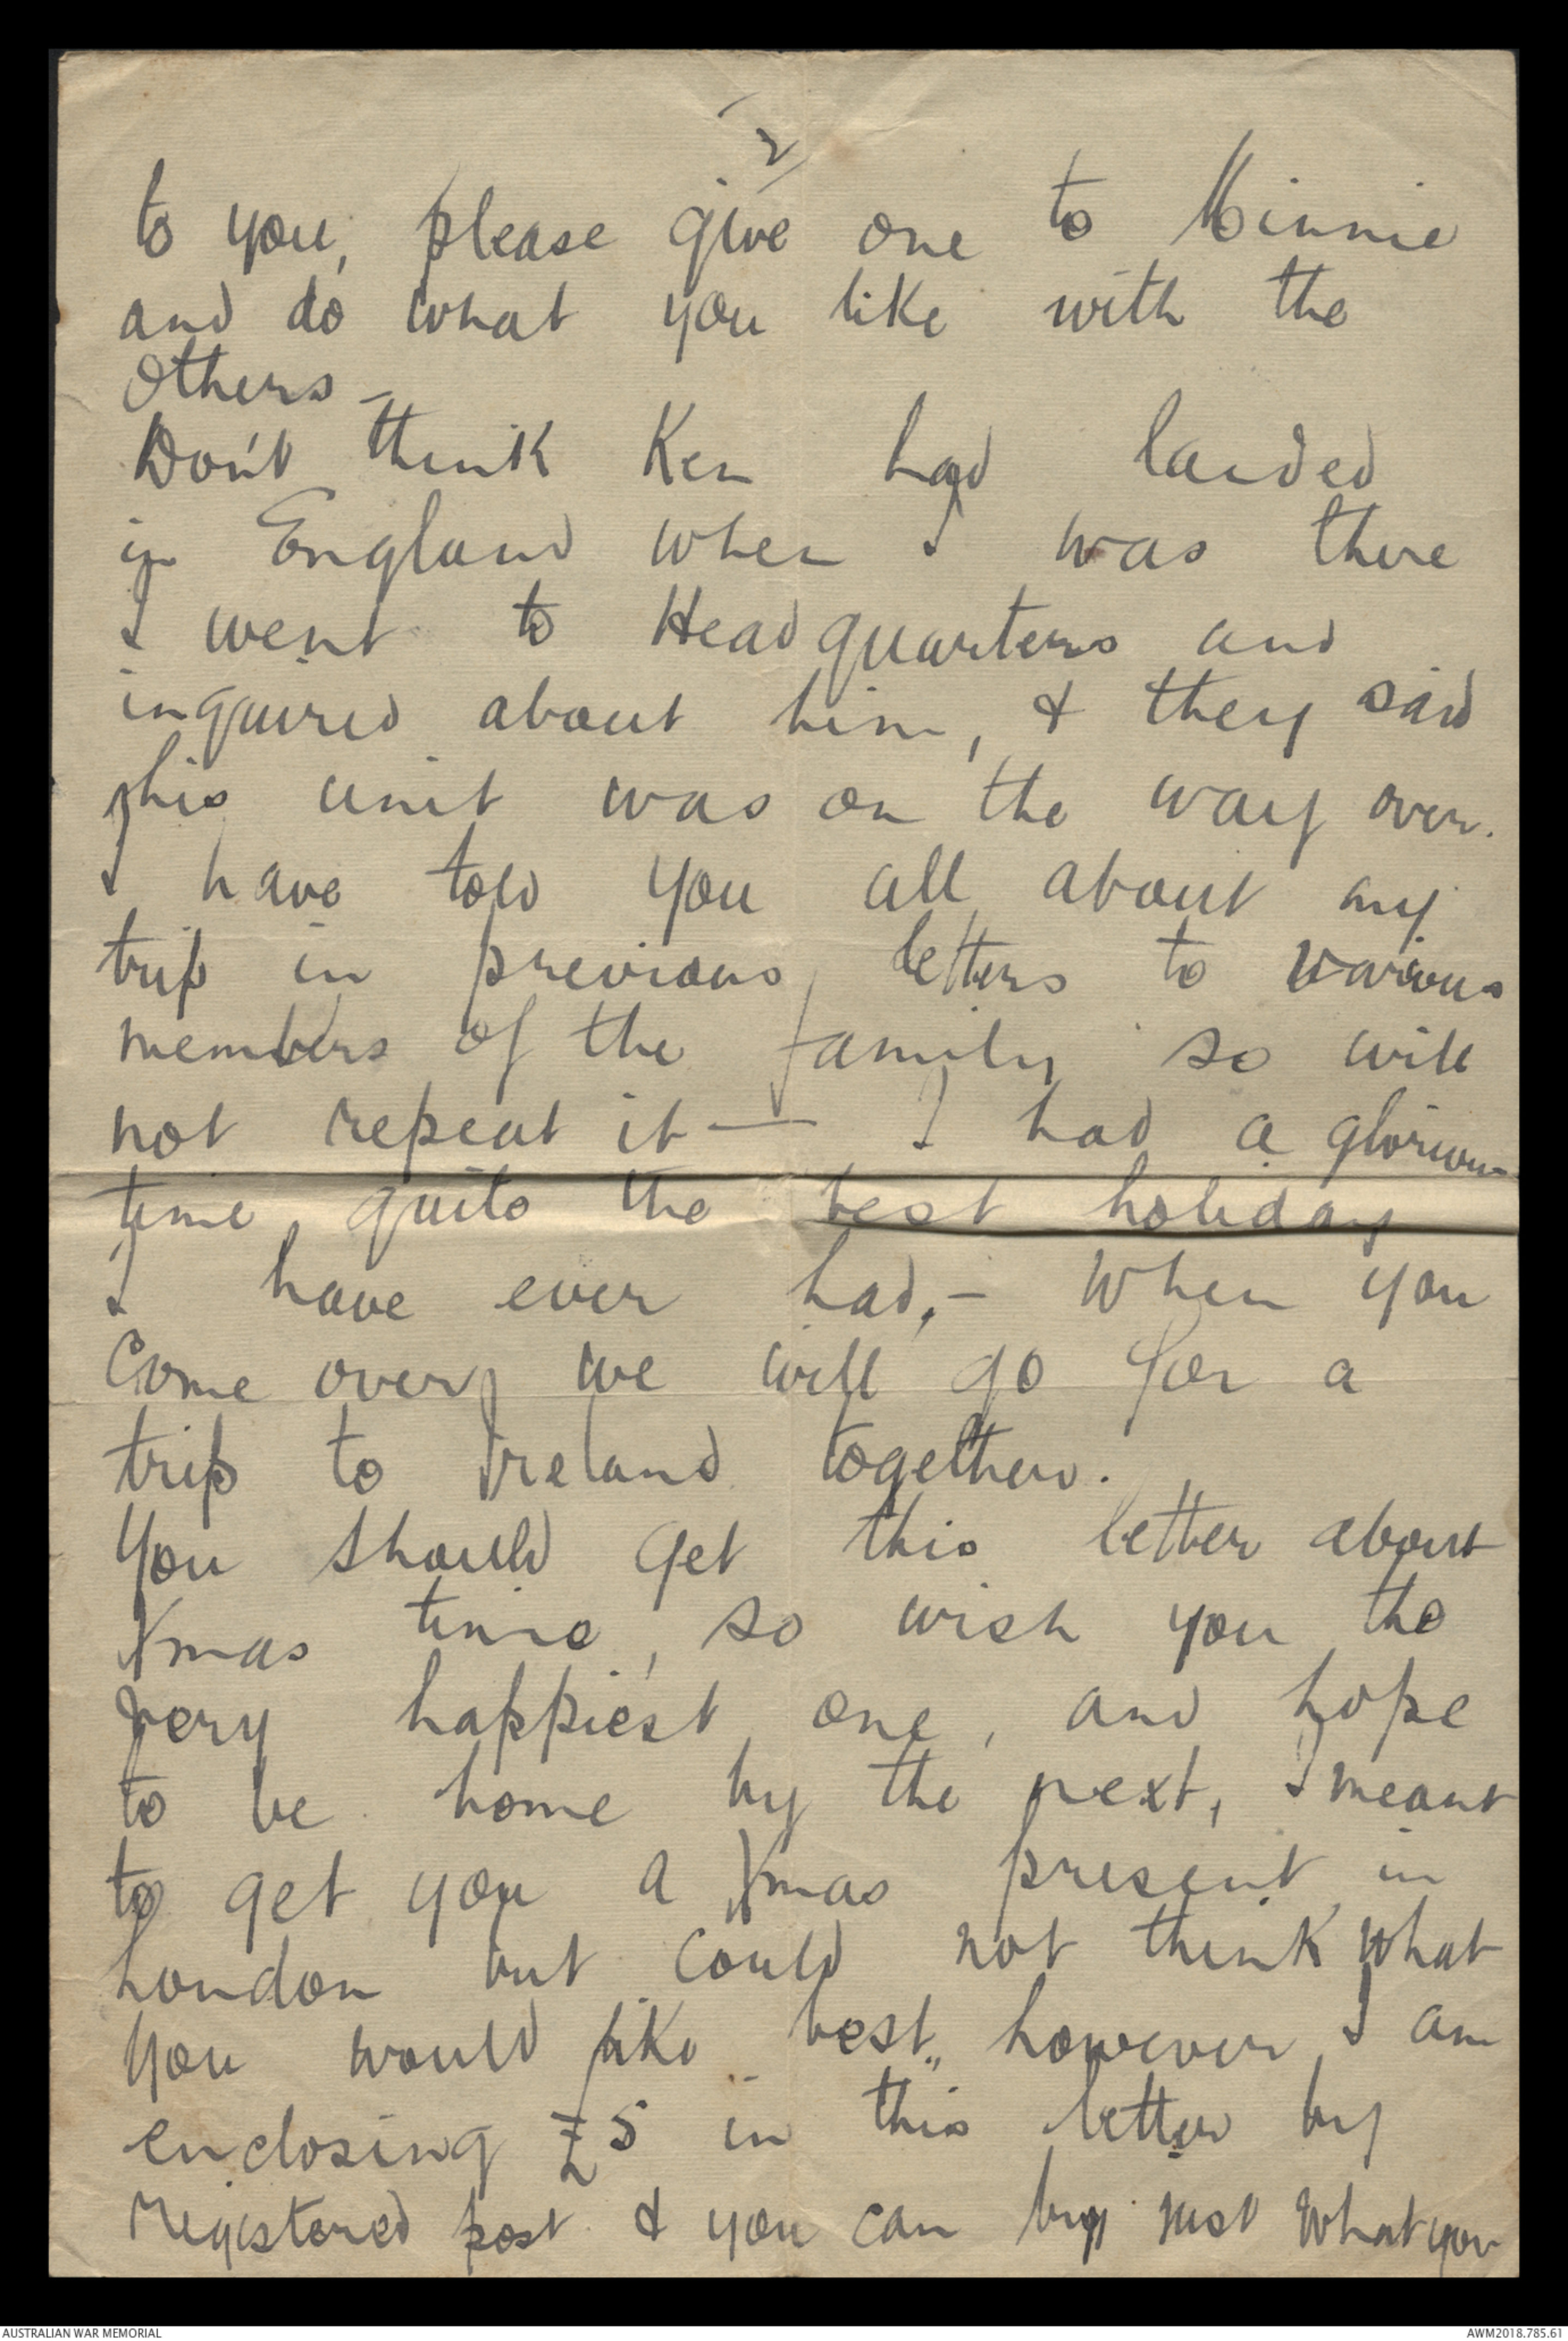 2/
to you, please give one to Minnie
and do what you like with the
others –
Don't think Ken had landed
in England when I was there
I went to Headquarters and
inquired about him, & they said
his unit was on the way over.
I have told you all about my
trip in previous letters to various
members of the family so will
not repeat it — I had a glorious
time, quite the best holiday
I have ever had, – When you
Come over, we will go for a
trip to Ireland together.
You should get this letter about
Xmas time, so wish you the
very happiest one, and hope
to be home by the next, I meant
to get you a Xmas present in
London but could not think what
you would like best, however I am
enclosing £5 in this letter by
registered post & you can buy just what you
AUSTRALIAN WAR MEMORIAL
AWM2018.785.61